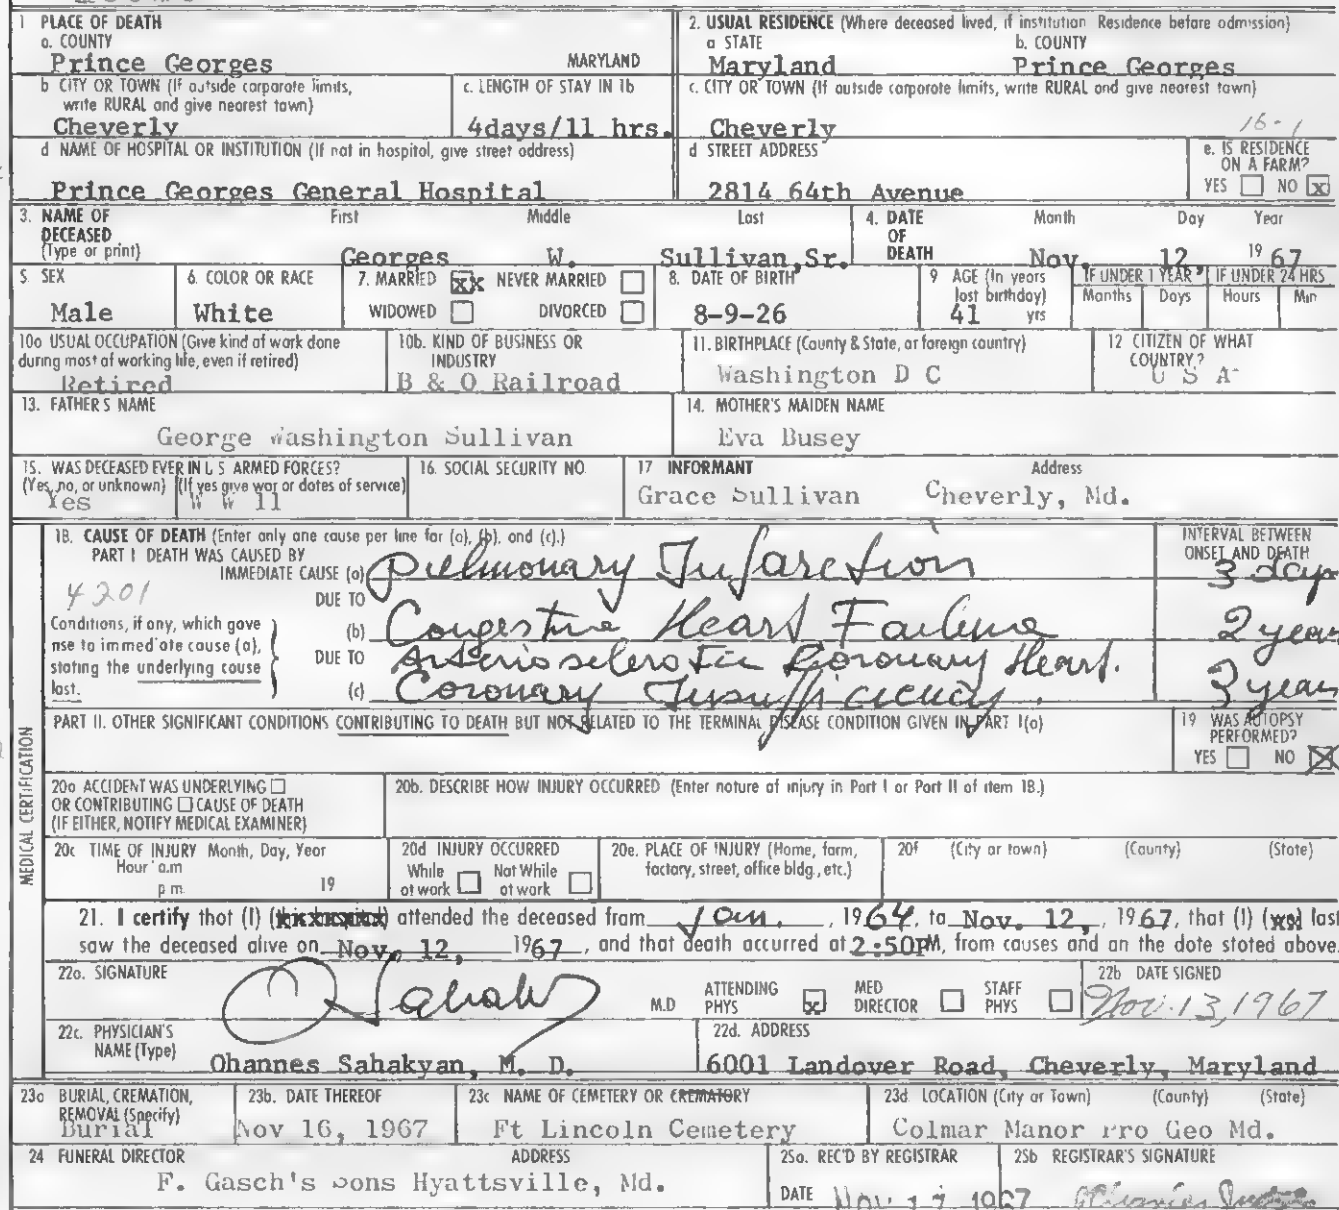 1 PLACE OF DEATH
a. COUNTY
Prince Georges MARYLAND
2. USUAL RESIDENCE (Where deceased lived, if institution Residence before admission)
a STATE b. COUNTY
Maryland Prince Georges
b CITY OR TOWN (If outside corporate limits, write RURAL and give nearest town)
Cheverly
c. LENGTH OF STAY IN 1b
4days/11 hrs.
c. CITY OR TOWN (If outside corporate limits, write RURAL and give nearest town)
Cheverly
16-1
d NAME OF HOSPITAL OR INSTITUTION (If not in hospital, give street address)
Prince Georges General Hospital
d STREET ADDRESS
2814 64th Avenue
e. IS RESIDENCE ON A FARM?
YES NO x
3. NAME OF DECEASED (Type or print)
First Middle Last
Georges W. Sullivan,Sr.
4. DATE OF DEATH
Month Day Year
Nov. 12, 19 67
5. SEX
Male
6. COLOR OR RACE
White
7. MARRIED xx NEVER MARRIED
WIDOWED DIVORCED
8. DATE OF BIRTH
8-9-26
9 AGE (In years last birthday)
41 yrs
IF UNDER 1 YEAR IF UNDER 24 HRS
Months Days Hours Min
10a USUAL OCCUPATION (Give kind of work done during most of working life, even if retired)
Retired
10b. KIND OF BUSINESS OR INDUSTRY
B & O Railroad
11. BIRTHPLACE (County & State, or foreign country)
Washington D C
12 CITIZEN OF WHAT COUNTRY?
U S A
13. FATHER'S NAME
George Washington Sullivan
14. MOTHER'S MAIDEN NAME
Eva Busey
15. WAS DECEASED EVER IN U S ARMED FORCES?
(Yes, no, or unknown) (If yes give war or dates of service)
Yes W W 11
16. SOCIAL SECURITY NO.
17 INFORMANT Address
Grace Sullivan Cheverly, Md.
MEDICAL CERTIFICATION
18. CAUSE OF DEATH (Enter only one cause per line for (a), (b), and (c).)
PART I DEATH WAS CAUSED BY
IMMEDIATE CAUSE (a) Pulmonary Infarction
INTERVAL BETWEEN ONSET AND DEATH
3 days
4201
Conditions, if any, which gave rise to immediate cause (a), stating the underlying cause last.
DUE TO
(b) Congestive Heart Failure
2 years
DUE TO Arteriosclerotic Coronary Heart.
(c) Coronary Insufficiency.
3 years
PART II. OTHER SIGNIFICANT CONDITIONS CONTRIBUTING TO DEATH BUT NOT RELATED TO THE TERMINAL DISEASE CONDITION GIVEN IN PART I(a)
19 WAS AUTOPSY PERFORMED?
YES NO X
20a ACCIDENT WAS UNDERLYING
OR CONTRIBUTING CAUSE OF DEATH
(IF EITHER, NOTIFY MEDICAL EXAMINER)
20b. DESCRIBE HOW INJURY OCCURRED (Enter nature of injury in Part I or Part II of item 18.)
20c TIME OF INJURY Month, Day, Year
Hour a.m
p m. 19
20d INJURY OCCURRED
While at work Not While at work
20e. PLACE OF INJURY (Home, farm, factory, street, office bldg., etc.)
20f (City or town) (County) (State)
21. I certify that (I) attended the deceased from Jan., 1964, to Nov. 12, 1967, that (I) last
saw the deceased alive on Nov. 12, 1967, and that death occurred at 2:50PM, from causes and on the date stated above.
22a. SIGNATURE
M.D
ATTENDING PHYS x MED DIRECTOR STAFF PHYS
22b DATE SIGNED
Nov. 13, 1967
22c. PHYSICIAN'S NAME (Type)
Ohannes Sahakyan, M. D.
22d. ADDRESS
6001 Landover Road, Cheverly, Maryland
23a BURIAL, CREMATION, REMOVAL (Specify)
Burial
23b. DATE THEREOF
Nov 16, 1967
23c NAME OF CEMETERY OR CREMATORY
Ft Lincoln Cemetery
23d LOCATION (City or Town) (County) (State)
Colmar Manor Pro Geo Md.
24 FUNERAL DIRECTOR ADDRESS
F. Gasch's Sons Hyattsville, Md.
25a. REC'D BY REGISTRAR
DATE Nov 17 1967
25b REGISTRAR'S SIGNATURE